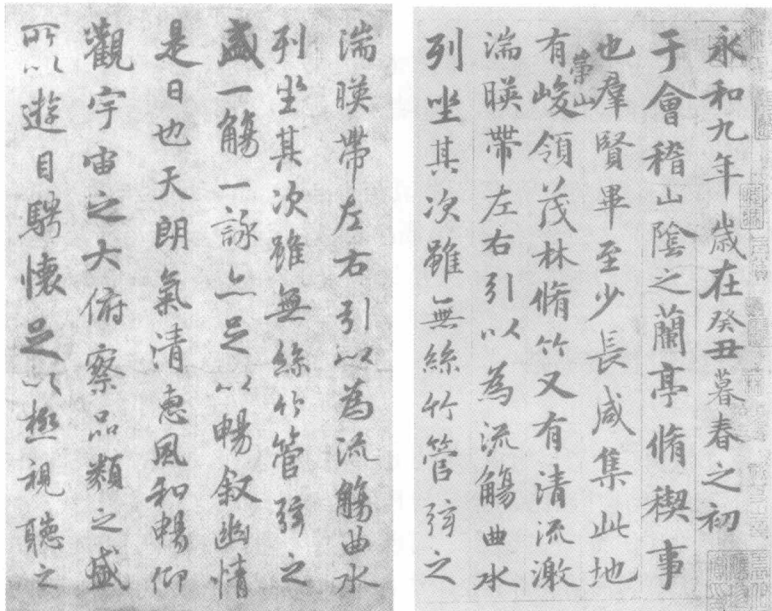 永和九年歲在癸丑暮春之初
于會稽山陰之蘭亭脩稧事
也羣賢畢至少長咸集此地
有崇山峻領茂林脩竹又有清流激
湍暎帶左右引以為流觴曲水
列坐其次雖無絲竹管弦之
湍暎帶左右引以為流觴曲水
列坐其次雖無絲竹管弦之
盛一觴一詠亦足以暢叙幽情
是日也天朗氣清惠風和暢仰
觀宇宙之大俯察品類之盛
所以遊目騁懷足以極視聽之